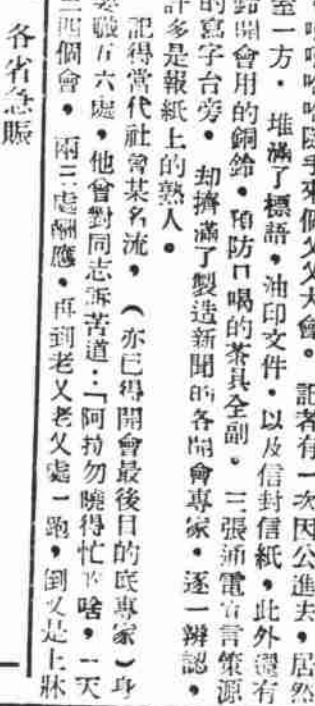 嘻嘻哈哈隨手來個父父大會。記者有一次因公進去，居然
室一方。堆滿了標語，油印文件。以及信封信紙，此外還有
鈴開會用的銅鈴。預防口喝的茶具全副。三張通電宣言策源
的寫字台旁。却擠滿了製造新聞的各開會專家。逐一辨認，
許多是報紙上的熟人。
記得當代社會某名流，（亦已得開會最後目的底專家）身
兼職五六處，他曾對同志訴苦道：「阿拉勿曉得忙的啥，一天
三四個會，兩三處酬應，再到老父老父處一跑，倒又是上牀
各省急賑